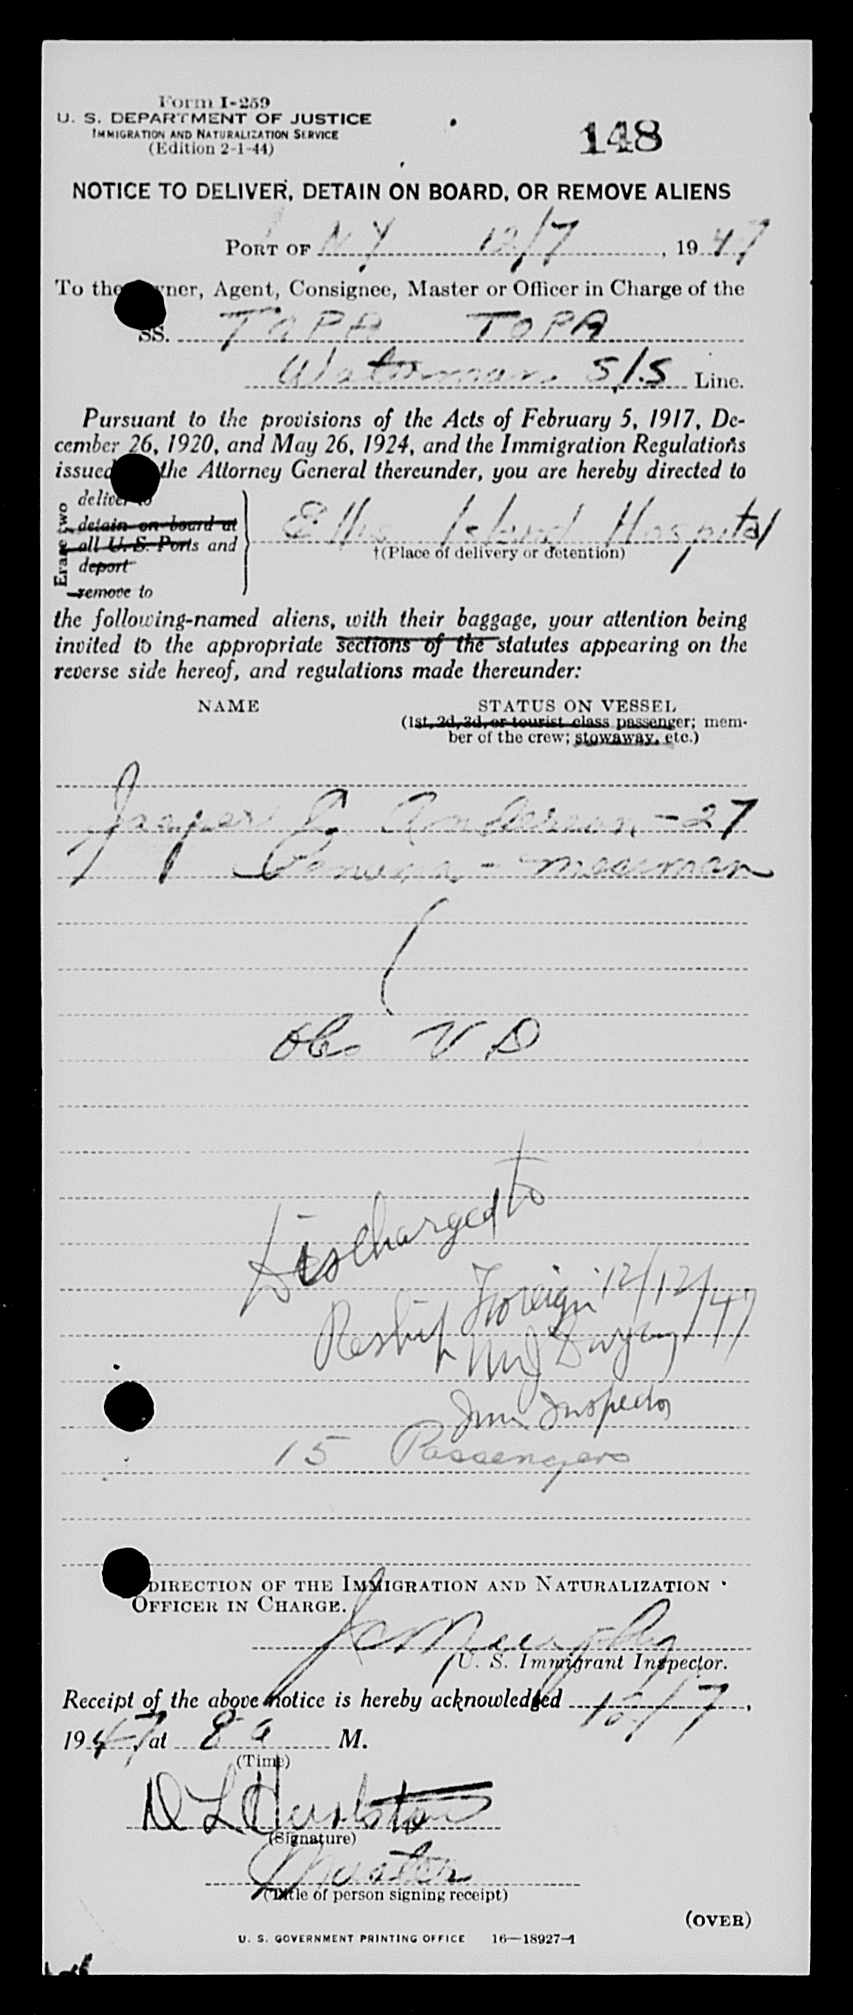 Form I-259
U. S. DEPARTMENT OF JUSTICE
IMMIGRATION AND NATURALIZATION SERVICE
(Edition 2-1-44)
148
NOTICE TO DELIVER, DETAIN ON BOARD, OR REMOVE ALIENS
PORT OF N Y 12/7, 1947
To the Owner, Agent, Consignee, Master or Officer in Charge of the
SS. TAPA TOPA
Waterman S/S Line.
Pursuant to the provisions of the Acts of February 5, 1917, De-
cember 26, 1920, and May 26, 1924, and the Immigration Regulations
issued the Attorney General thereunder, you are hereby directed to
Erase two
deliver to
detain on board at
all U. S. Ports and
deport
remove to
Ellis Island Hospital
†(Place of delivery or detention)
the following-named aliens, with their baggage, your attention being
invited to the appropriate sections of the statutes appearing on the
reverse side hereof, and regulations made thereunder:
NAME STATUS ON VESSEL
(1st, 2d, 3d, or tourist class passenger; mem-
ber of the crew; stowaway, etc.)
Jasper J Anderson - 27
- messman
Obs V D
Discharged to
Reship Foreign 12/12/47
Imm Inspector
15 Passengers
DIRECTION OF THE IMMIGRATION AND NATURALIZATION
OFFICER IN CHARGE.
Murphy
U. S. Immigrant Inspector.
Receipt of the above notice is hereby acknowledged 12/7,
1947, at 8 a M.
(Time)
D L
(Signature)
Master
(Title of person signing receipt)
(OVER)
U. S. GOVERNMENT PRINTING OFFICE 16—18927-1